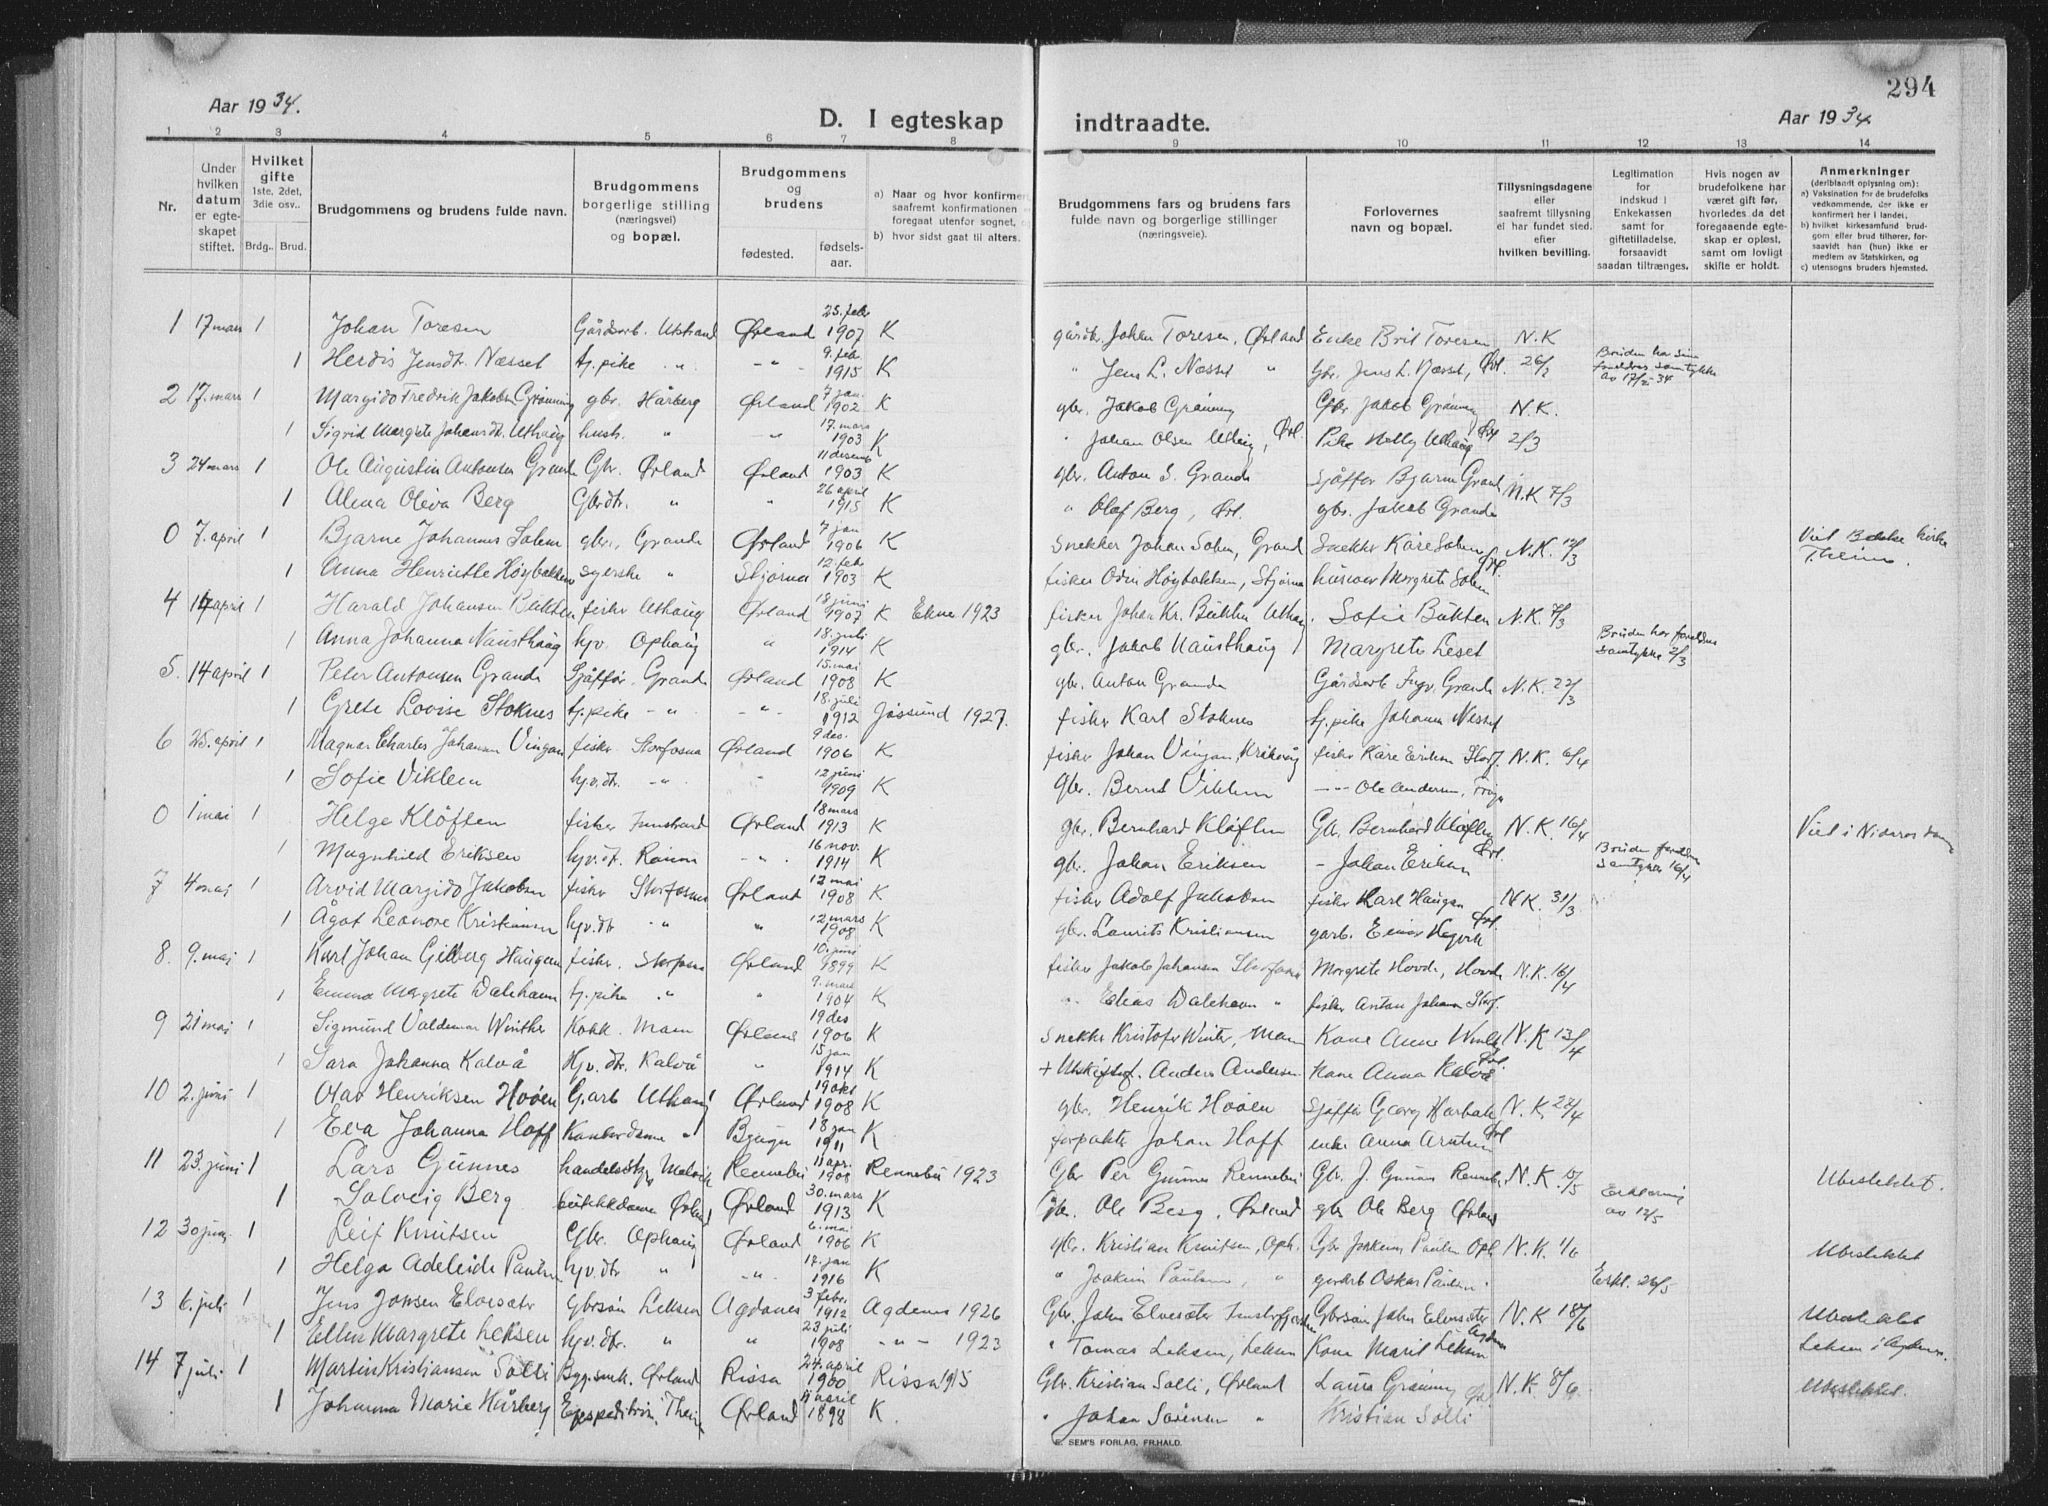 294
Aar 1934.
D. I egteskap indtraadte.
Aar 1934
1 2 3 4 5 6 7 8 9 10 11 12 13 14
Nr.
Under hvilken datum er egteskapet stiftet.
Hvilket gifte 1ste, 2det, 3die osv..
Brdg.. Brud.
Brudgommens og brudens fulde navn.
Brudgommens borgerlige stilling (næringsvei) og bopæl.
Brudgommens og brudens
fødested. fødsels-aar.
a) Naar og hvor konfirmer
saafremt konfirmationen
foregaat utenfor sognet, o
b) hvor sidst gaat til alters.
Brudgommens fars og brudens fars fulde navn og borgerlige stillinger (næringsveie).
Forlovernes navn og bopæl.
Tillysningsdagene eller saafremt tillysning ei har fundet sted. efter hvilken bevilling.
Legitimation for indskud i Enkekassen samt for giftetilladelse, forsaavidt saadan tiltrænges.
Hvis nogen av brudefolkene har været gift før, hvorledes da det foregaaende egteskap er opløst, samt om lovligt skifte er holdt.
Anmerkninger
(deriblandt oplysning om):
a) Vaksination for de brudefolks vedkommende, der ikke er konfirmert her i landet,
b) hvilket kirkesamfund brudgom eller brud tilhører, forsaavidt han (hun) ikke er medlem av Statskirken, og
c) utensogns bruders hjemsted.
1 17 mars 1 Johan Toresen Gårdsarb. Utstrand Ørland 25. febr 1907 K gårdbr. Johan Toresen, Ørland Enke Brit Toresen N.K
1 Herdis Jensdt. Næsset tj. pike " -"- 9. feb 1915 K " Jens L. Næsset " Gbr. Jens L. Næsset, Ørl. 26/2 Bruden har sine foreldres samtykke av 17/2-34
2 17. mars 1 Margido Fredrik Jakobsen Grønning gbr. Hårberg Ørland 7 jan. 1902 K gbr. Jakob Grønning Gbr Jakob Grønning N.K.
1 Sigrid Margrete Johansdt. Uthaug hush. " -"- 17. mars 1903 K " Johan Olsen Uthaug, Ørl. Pike Nelly Uthaug Ørl 2/3
3 24 mars 1 Ole Augustin Antonsen Grande Gbr. Ørland Ørland 11 desemb 1903 K gbr. Anton S. Grande Sjåffør Bjarne Grande N.K 7/3
1 Alma Oleva Berg Gbrdtr. " " 26 april 1915 K " Olaf Berg, Ørl. gbr. Jakob Grande
0 7. april 1 Bjarne Johannes Solem gbr. Grande Ørland 7 jan 1906 K Snekker Johan Solem, Grand Snekker Kåre Solem Ørl. N.K. 12/3 Viet Bakke kirke T.heim.
1 Anna Henriette Høybakken syerske " Stjørna 12. febr 1903 K fisker Odin Høybakken, Stjørna husmor Margrete Solem
4 14 april 1 Harald Johansen Bukten fisker Uthaug Ørland 18 juni 1907 K Ekne 1923 fisker Johan Kr. Bukten Uthaug. Sofie Bukten N.K. 7/3
1 Anna Johanna Nausthaug hjv. Ophaug " 18. juli 1914 K gbr. Jakob Nausthaug Margrete Leset Bruden har foreldres samtykke 2/3
5. 14 april 1 Peter Antonsen Grande Sjåffør. Grande Ørland 15. mai 1908 K gbr. Anton Grande Gårdsarb Ingv. Grande N.K. 22/3
1 Grete Lovise Stoknes tj. pike -"- -"- 18. juli 1912 Jøssund 1927. fisker Karl Stoknes tj. pike Johanna Nesset
6 25. april 1 Magnar Charles Johansen Vingan fisker. Storfosna Ørland 9 des. 1906 K fisker Johan Vingan, Kråkvåg fisker Kåre Eriksen Storf. N.K. 6/4
1 Sofie Viklem hjv. dtr. -"- " 12 juni 1909 K Gbr. Bernt Viklem -"- Ole Andersen,
0 1 mai 1 Helge Kløften fisker Innstrand Ørland 18 mars 1913 K gbr. Bernhard Kløften Gbr. Bernhard Kløften Ørl. N.K. 16/4 Viet i Nidarosdom
1 Magnhild Eriksen hjv. dt. -"- 16 nov. 1914 K gbr. Johan Eriksen - Johan Eriksen Bruden foreldres samtykke 16/4
7 4 mai 1 Arvid Margido Jakobsen fisker Storfosna Ørland 12 mai 1908 K fisker Adolf Jakobsen fisker Karl Haugen Ørl. N.K. 31/3
1 Ågot Leonore Kristiansen hjv. dtr " " 12 mars 1908 K gbr. Laurits Kristiansen garb. Einar Hegvik
8. 9. mai 1 Karl Johan Gilberg Haugen fisker. Storfosna Ørland 10. juni 1899 K fisker Jakob Johansen Storfosna Margrete Hovde, Hovde N.K. 16/4
1 Emma Margrete Dalehavn tj. pike " " 9. mars 1904 K " Elias Dalehavn " fisker Anton Johansen Storf.
9 21 mai 1 Sigmund Valdemar Winther Kokk. Ørland 19 des 1906 K Snekker Kristofer Winter, Kone Anne Winter N.K 13/4
1 Sara Johanna Kalvå Hjv. dtr. Kalvå " 15 jan 1914 K + Anders Andersen. Kone Anna Kalvå Ørl
10 2. juni 1 Olav Henriksen Hovén G.arb Uthaug Ørland 19 okt 1908 K gbr. Henrik Hovén Sjåffør Georg Harbak N.K. 27/4
1 Eva Johanna Hoff Kontordame " Bjugn 18 jan 1911 K forpakter Johan Hoff enke Anna Arntsen Ørl
11 23. juni 1 Lars Gunnes handelsbst. Melvik Rennebu 11 apr. 1908 Rennebu 1923 Gbr Per Gunnes Rennebu Gbr. J. Gunnes Rennebu N.K. 10/5 Ubeslektet.
1 Solveig Berg butikkdame Ørland Ørland 30. mars 1913 K Gbr. Ole Berg, Ørland gbr Ole Berg Ørland Erklæring av 12/5
12 30 juni 1 Leif Knutsen Gbr. Ophaug Ørland 6. mai 1906 K gbr. Kristian Knutsen, Oph. Gbr Joakim Paulsen Oph N.K. 1/6 Ubeslektet
1 Helga Adeleide Paulsen hjv. dtr " -"- 17. jan 1916 K " Joakim Paulsen, " Oskar Paulsen Erkl. 26/5
13 6. juli 1 Jens Jonsen Elvesæter Gbrsøn Leksen Agdenes 3 febr. 1912 Agdenes 1926 Gbr. John Elvesæter Gbrsøn John Elvesæter Agdenes N.K 18/6 Ubeslektet
1 Ellen Margrete Leksen hjv. dtr. " " 23 juli 1908 -"- 1923 " Tomas Leksen, Leksen Kone Marit Leksen Leksen i Agdenes.
14 7 juli 1 Martin Kristiansen Solli Bygn.snk. Ørland Rissa 24. april 1900 Rissa 1915 Gbr. Kristian Solli, Ørland Laura Grønning Ørl. N.K. 8/6. Ubeslektet.
1 Johanna Marie Hårberg Expeditrise T.heim Ørland 11 april 1898 K. " Johan Sørensen " Kristian Solli
E. SEM'S FORLAG, FR.HALD.